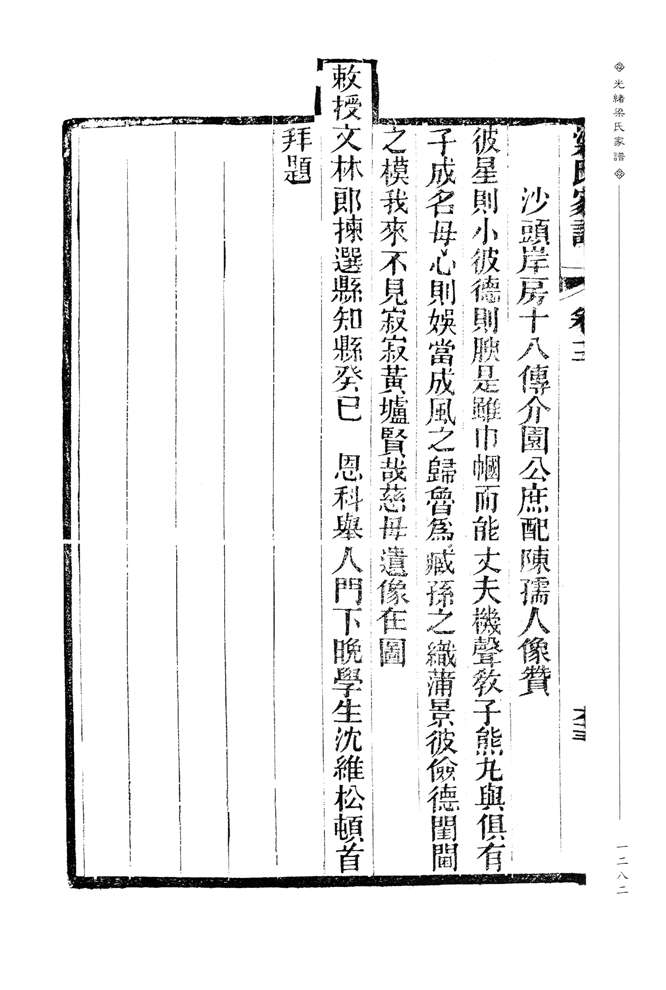 光緒梁氏家譜
一二八二
梁氏家譜 卷十三
沙頭岸房十八傳介園公庶配陳孺人像贊
彼星則小彼德則腴是雖巾幗而能丈夫機聲敎子熊丸與俱有
子成名母心則娛當成風之歸魯爲臧孫之織蒲景彼儉德閨閫
之模我來不見寂寂黃壚賢哉慈母遺像在圖
敕授文林郎揀選縣知縣癸巳 恩科舉人門下晚學生沈維松頓首
拜題